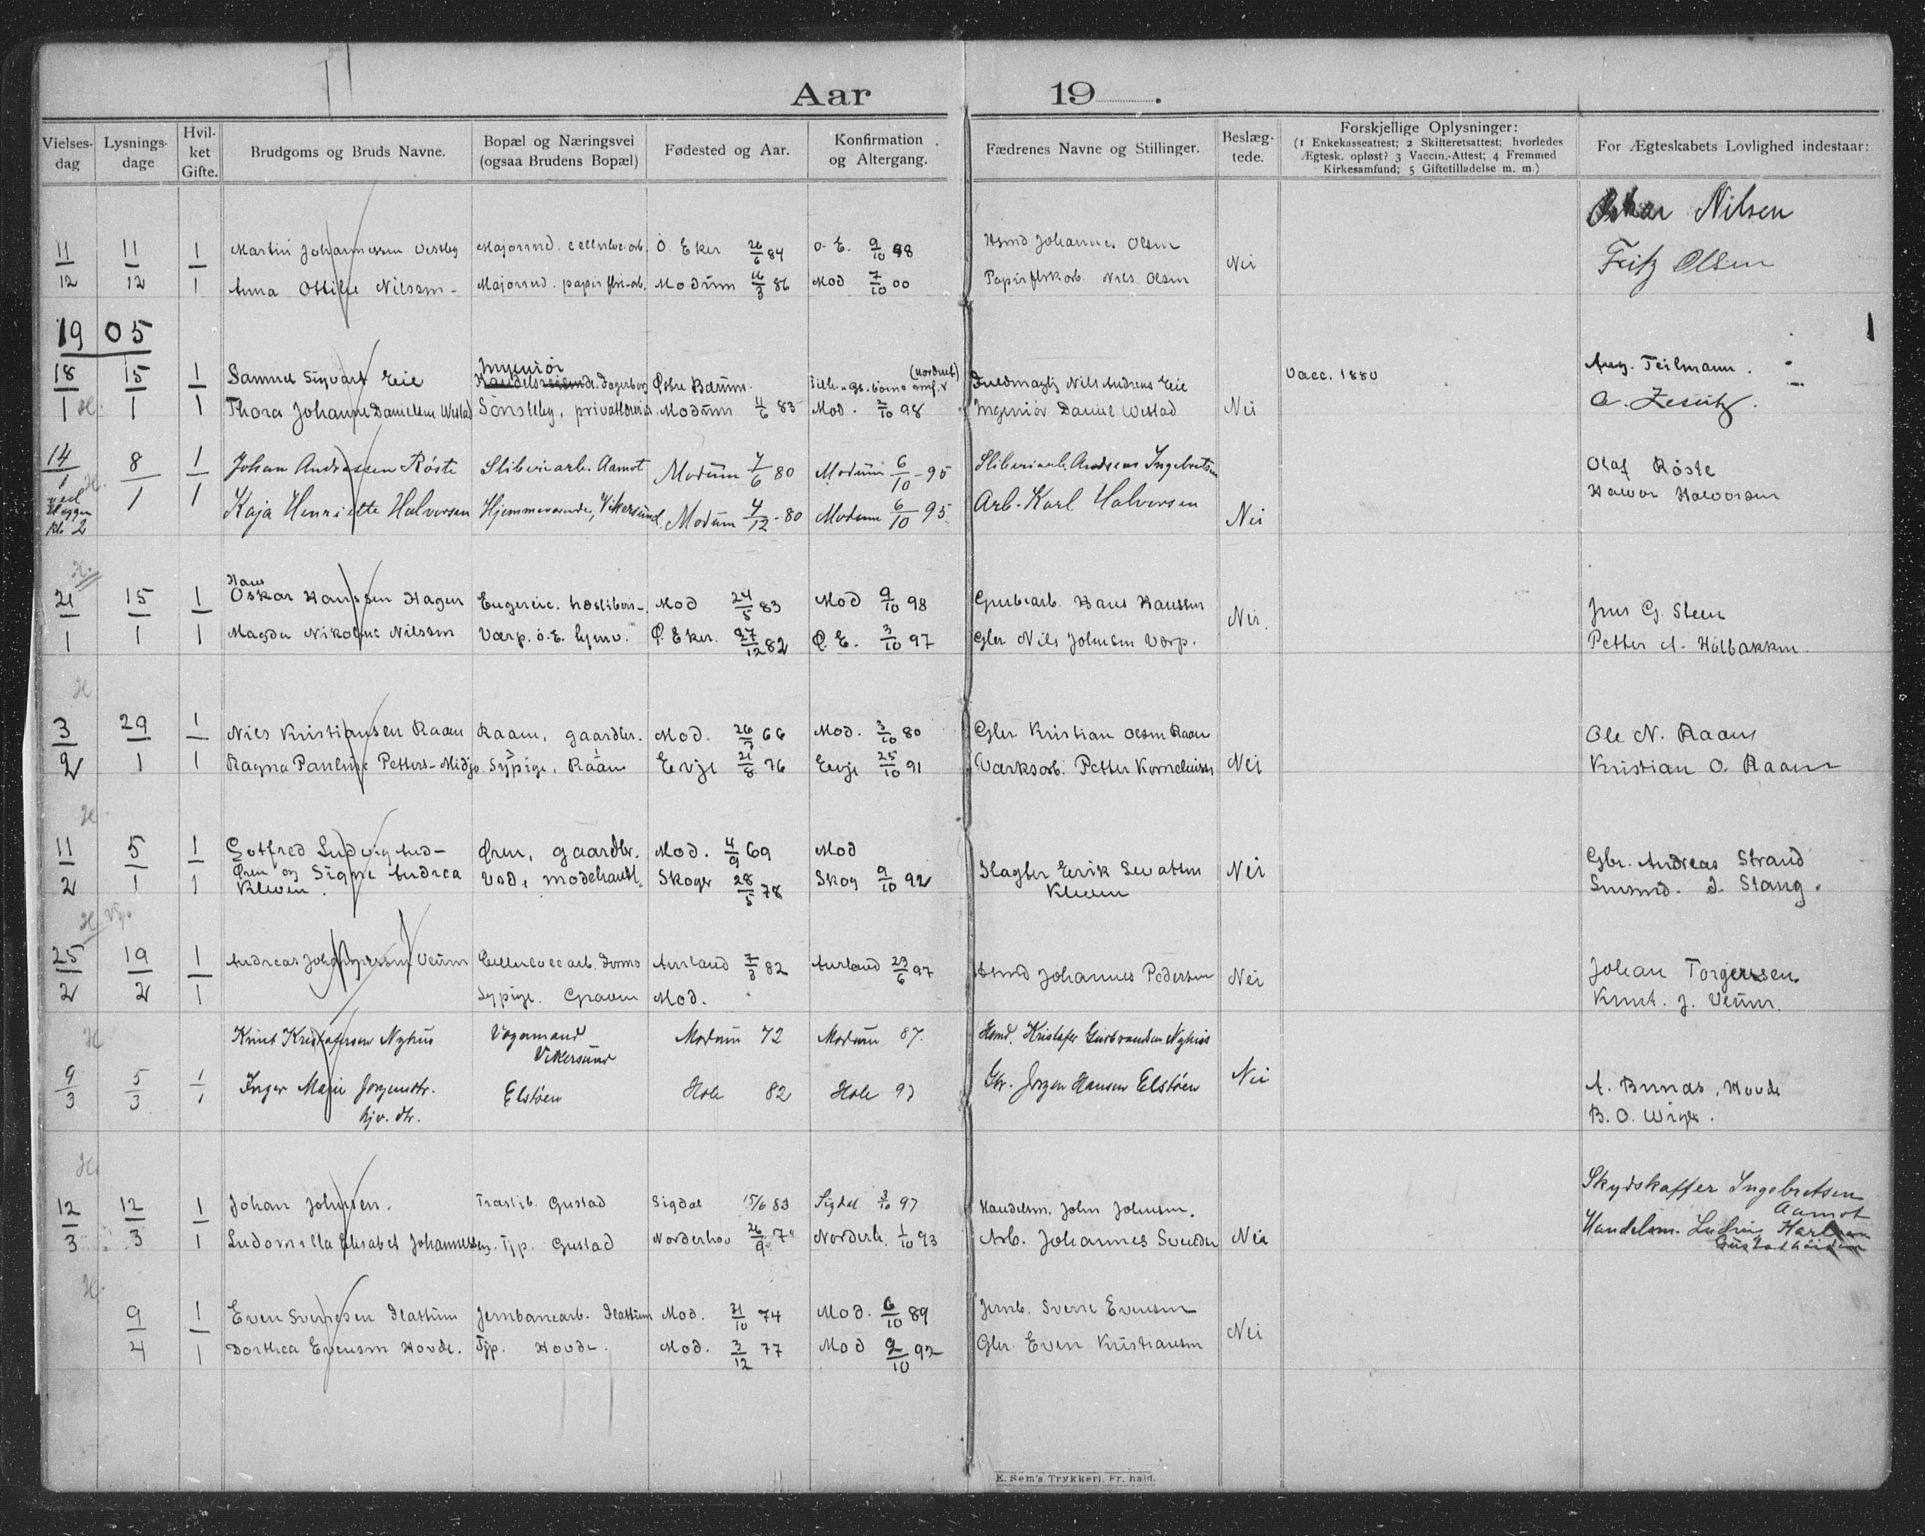 Aar 19 .
Vielses-dag | Lysnings-dage | Hvil-ket Gifte. | Brudgoms og Bruds Navne. | Bopæl og Næringsvei (ogsaa Brudens Bopæl) | Fødested og Aar. | Konfirmation og Altergang. | Fædrenes Navne og Stillinger. | Beslæg-tede. | Forskjellige Oplysninger: (1 Enkekasseattest; 2 Skifteretsattest; hvorledes Ægtesk. opløst? 3 Vaccin.-Attest; 4 Fremmed Kirkesamfund; 5 Giftetilladelse m. m.) | For Ægteskabets Lovlighed indestaar:
Oskar Nilsen
11 11 1 Martin Johannessen Vestby Majorsed. O. Eker 26/6 84 O. E. 9/10 98 Hsmd Johannes Olsen Nei Fritz Olsen
12 12 1 Anna Ottilie Nilssen Majorsed. papirfbr.arb. Modum 16/3 86 Mod 7/10 00 Papirfbrkarb. Nils Olsen
1905 1
Ingeniør (nordret)
18 15 1 Samuel Sigvart Eie Handelsreisende. Østre Bærum. Fuldmægtig Nils Andreas Eie Vacc. 1880 Aug. Teilmann.
1 H. 1 1 Thora Johanne Danielsen Westad Sønsteby, Modum 4/6 83 Mod. 2/10 98 Ingeniør Daniel Westad Nei
14 8 1 Johan Andreassen Røste Sliberiarb. Aamot Modum 7/6 80 Modum 6/10 - 95 Sliberiarb. Andreas Ingebretsen Olaf Røste
1 H. 1 1 Kaja Henriette Halvorsen Hjemmeværende, Vikersund. Modum 4/12 - 80 Modum 6/10 95. Arb. Karl Halvorsen Nei Halvor Halvorsen
ved Heggen kl. 2
H.
Hans
21 15 1 Oskar Hanssen Hagen Mod 24/5 83 Mod 9/10 98 Hans Hanssen Nei. Jens G. Steen
1 1 1 Magda Nikoline Nilssen Værp. Ö. E. hjmv. Ø. Eker. 27/12 82 Ø. E. 3/10 97 Gbr Nils Johnsen Værp. Petter A. Holbakken.
H
3 29 1 Nils Kristiansen Raaen Raaen, gaardbr. Mod. 26/7 66 Mod. 3/10 80 Gbr Kristian Olsen Raaen Ole N. Raaen
2 1 1 Ragna Pauline Petters-Midjo Sypige, Raaen Evje 21/8 76 Evje 25/10 91 Værksarb. Petter Korneliussen Nei Kristian O. Raaen
H.
11 5 1 Gotfred Ludvig And- Øren, gaardbr. Mod. 4/9 69 Mod Gbr. Andreas Strand
2 1 1 Øren og Signe Andrea Kleven. Vad, modehandl. Skoger 28/5 78 Skog 9/10 92 Slagter Erik Kleven Nei Smsmd. J. Stang.
H.
25 19 1 Andreas Veum Cellulocearb. Aurland 7/3 82 Aurland 23/6 97 Hsmd Johannes Pedersen Nei Johan Torgersen
2 2 1 Sypige. Graven Mod. Knut. J. Veum.
H Knut Kristofersen Nyhus Vognmand Vikersund Modum 72 Modum 87. Hsmd. Kristofer Gulbrandsen Nyhus
9 5 1 Inger Marie Jørgensdtr. Elstøen Hole 82 Hole 97 Gbr. Jørgen Hansen Elstøen Nei A. Bunæs, Hovde
3 3 1 hjv. dtr. B. O. Wiger.
H. Skydskaffer Ingebretsen Aamot
12 12 1 Johan Johnsen. Træslib. Gustad Sigdal 15/6 83 Sigdal 3/10 97 Handelsm. John Johnsen.
3 3 1 Ludomilla Elisabet Johannessen. Tjp. Gustad Norderhov 26/9 Norderh. 1/10 93 Arb. Johannes Nei Handelsm. Ludvig Karlsen
H.
9 1 Even Svensen Slattum Jernbanearb. Slattum Mod. 31/10 74 Mod. 6/10 89 Jernb. Svene Evensen
4 1 Dorthea Evensen Hovde. Tjp. Hovde. Mod. 3/12 77 Mod 2/10 92 Gbr. Even Kristiansen Nei
E. Sem's Trykkeri, Fr. hald.